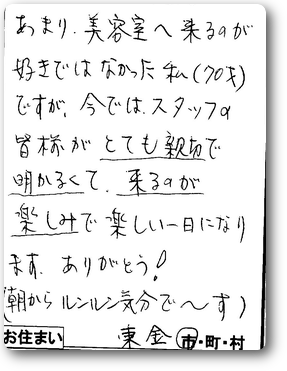 あまり、美容室へ来るのが
好きではなかった私(70才)
ですが、今では、スタッフの
皆様がとても親切で
明かるくて、来るのが
楽しみで楽しい一日になり
ます。ありがとう!
(朝からルンルン気分で〜す)
お住まい 東金 市・町・村